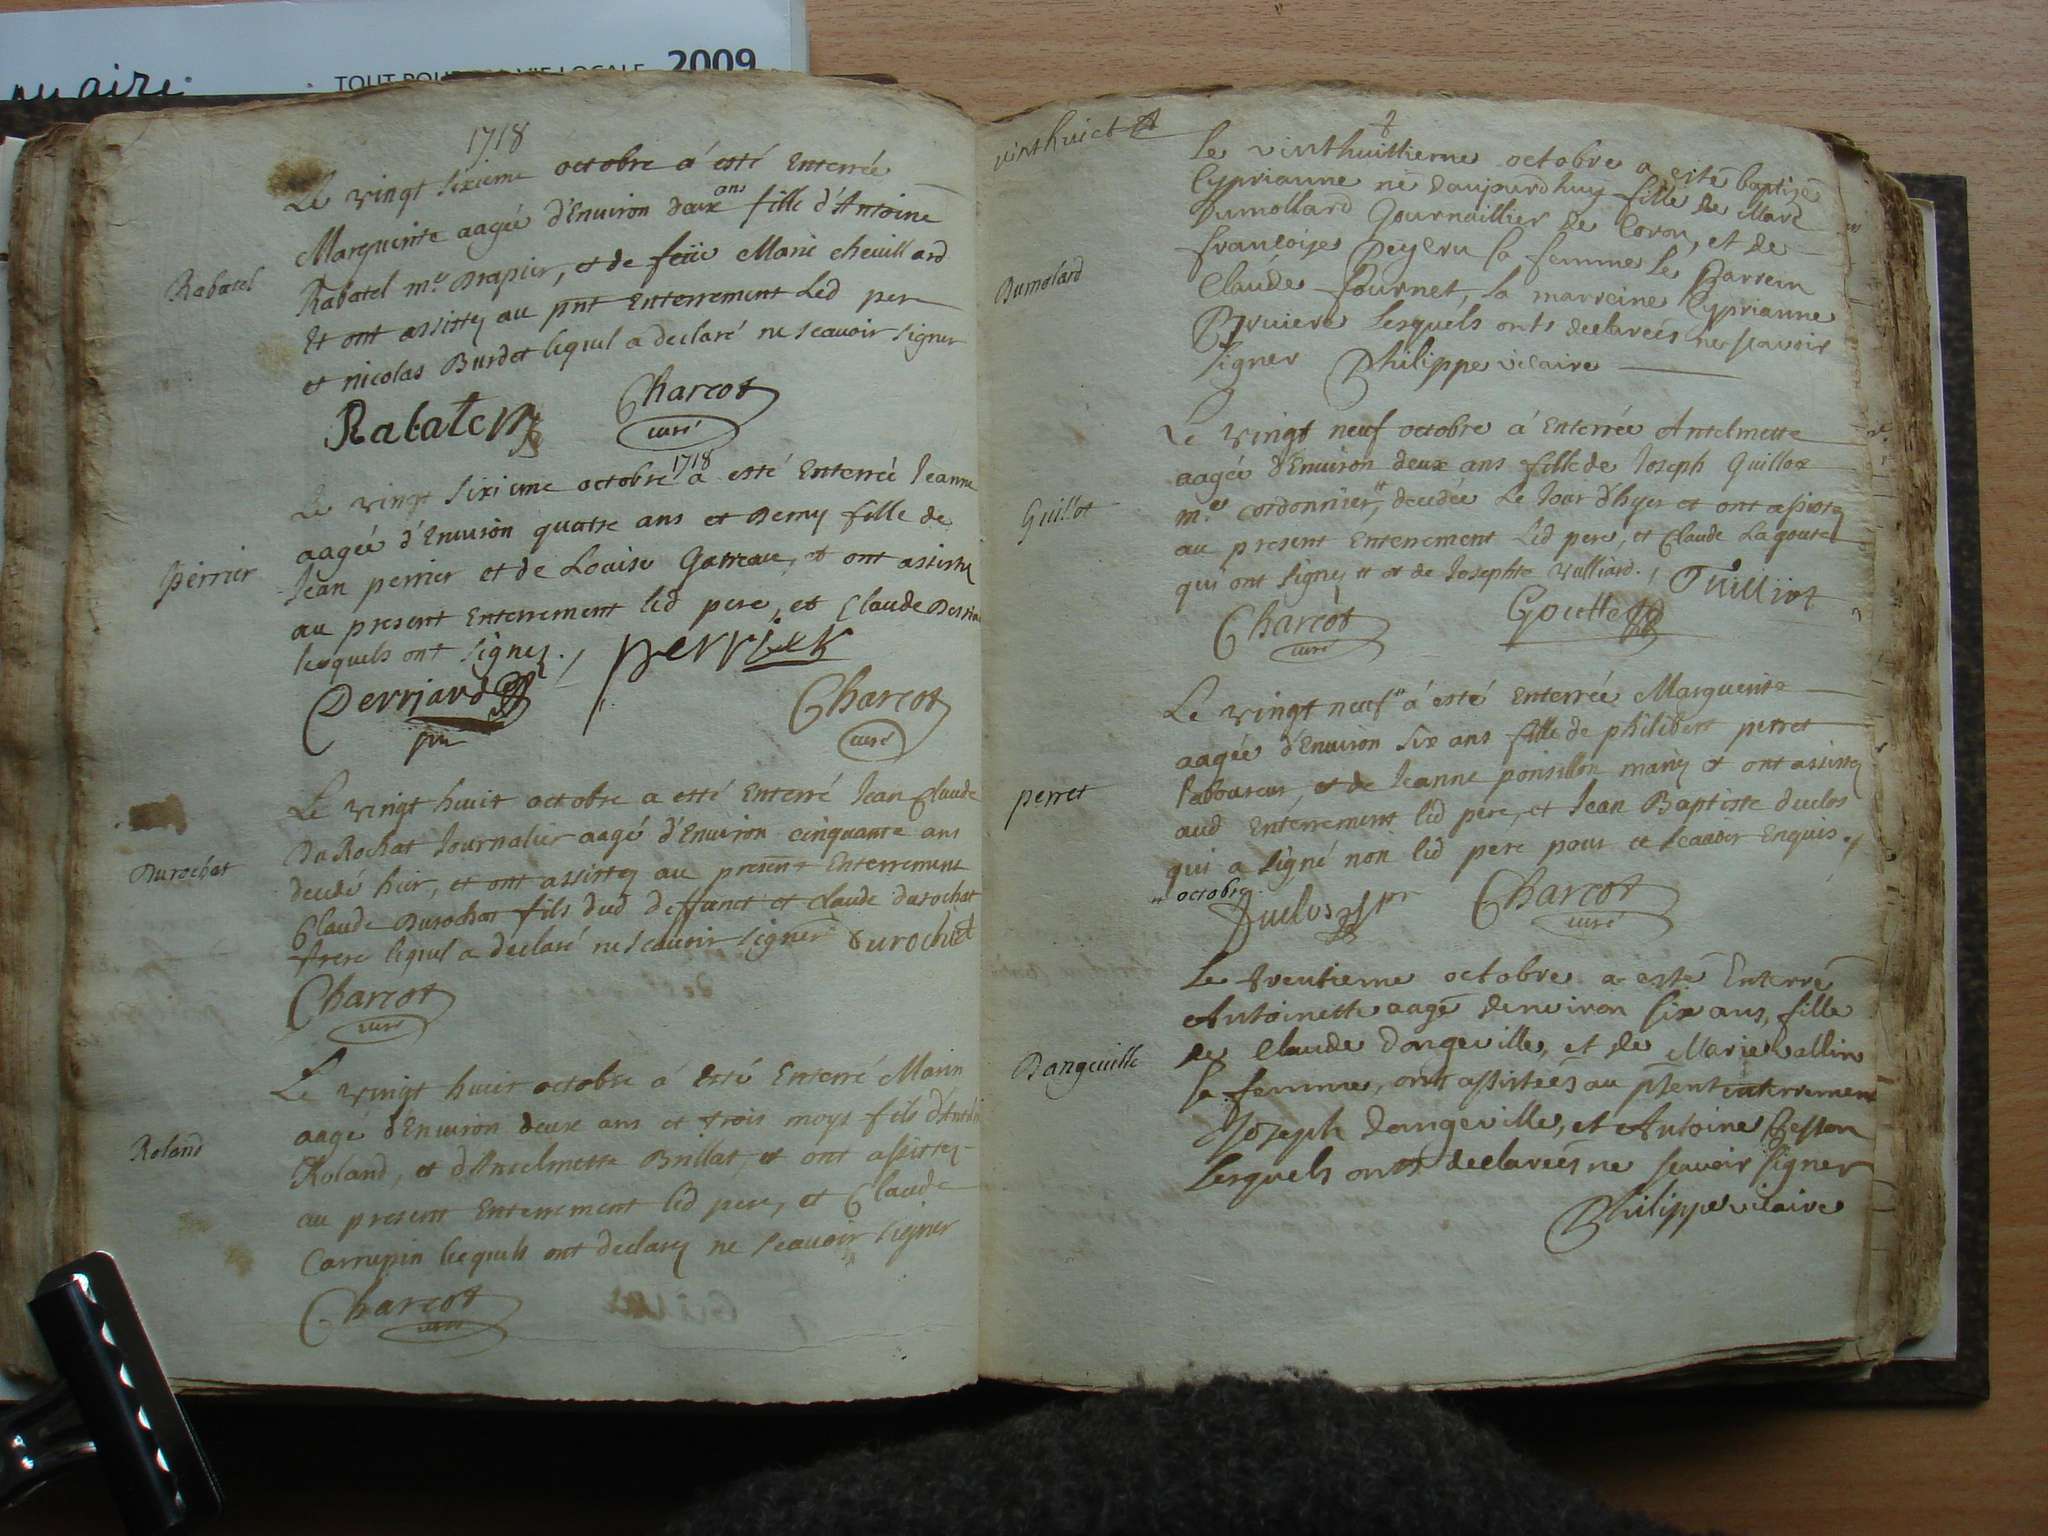 TOUT POUR VIE LOCALE 2009
1718
Le vingt sixieme octobre a esté Enterrée
Marguerite aagée d'Environ deux ans fille d'Antoine
Rabatel
Rabatel me Drapier, et de feüe Marie chevillard
Et ont assistez au pnt Enterrement led per
et nicolas Burdet lequel a declaré ne scavoir signer
Rabatel
Charcot
curé
Le vingt sixieme octobre 1718 a esté Enterrée Jeanne
aagée d'Environ quatre ans et Demy fille de
perrier
Jean perrier et de Louise Garreau, et ont assisté
au present Enterrement led pere, et Claude
lesquels ont signez.
perrier
Derrjard
Charcot
curé
Le vingt huit octobre a esté Enterré Jean Claude
DuRochat Journalier aagé d'Environ cinquante ans
Durochat
decedé hier, et ont assistez au present Enterrement
Claude Durochat fils dud deffunct et claude durochat
frere lequel a declaré ne scavoir signer durochat
Charcot
curé
Le vingt huit octobre a esté Enterré Marin
aagé d'Environ deux ans et trois moys fils
Roland
Roland, et d'Anselmette Brillat, et ont assistez
au present Enterrement led pere, et Claude
Carrupin lesquels ont declarez ne scavoir signer
Charcot
curé
vinthuict
2
Le vinthuittieme octobre a esté baptisé
Cyprianne né daujourdhuy fille de Marc
Dumollard Journaillier de Coron, et de
Dumolard
françoise Peyeru sa femme le Parrein
Claude fournet, la marreine Cyprianne
Bruiere lesquels onts declareés ne scavoir
signer Philippe vicaire
Le vingt neuf octobre a Enterrée Anselmette
aagée d'Environ deux ans fille de Joseph Guillot
Guillot
me cordonnier, decedée Le Jour d'hyer et ont assistez
au present Enterrement Led pere, et Claude Lagoute
qui ont signez " et de Josephte vulliard.
Charcot
curé
Goutte
Le vingt neuf " a esté Enterrée Marguerite
aagée d'Environ six ans fille de philibert perret
perret
laboureur, et de Jeanne ponsillon mariez et ont assistez
aud Enterrement led pere, et Jean Baptiste duclos
qui a signé non led pere pour ce scavoir Enquis
" octobre
Duclos
Charcot
curé
Le trentieme octobre a esté Enterré
Antoinette aagé denviron six ans, fille
de Claude dangeville, et de Marie vallin
Dangeuille
sa femme, onts assisteés au psent interrement
Joseph dangeville, et Antoine Besson
Lesquels onts declareés ne scavoir signer
Philippe vicaire